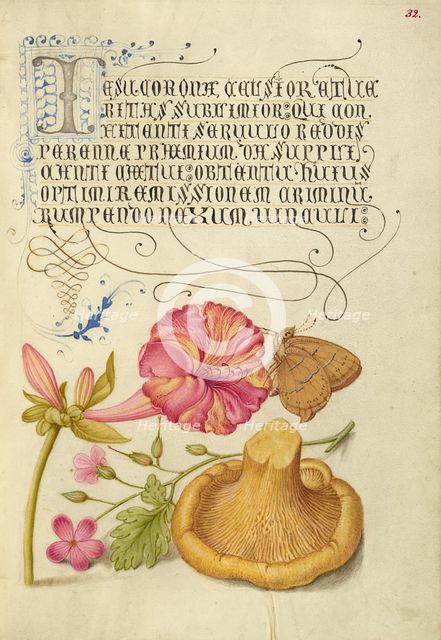 32.
IESU CORONA CELSIOR ET VE
RITAS SUBLIMIOR: QUI CON
FITENTI SERVULO REDDIS
PERENNE PRÆMIUM. DA SUPPLI
CANTI CŒTUI: OBTENTU HUIUS
OPTIMI REMISSIONEM CRIMINŪ
RUMPENDO NEXUM VINCULI:
Heritage
Heritage
Heritage
Heritage